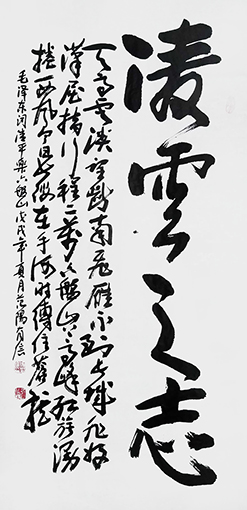 凌雲之志
天高雲淡望斷南飛雁不到長城非好
漢屈指行程二萬六盤山上高峰紅旗漫
捲西風今日長纓在手何時縛住蒼龍
毛澤東詞清平樂六盤山戊戌年夏月范陽